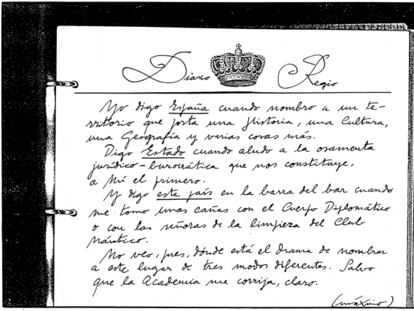 Diario Regio
Yo digo España cuando nombro a un te-
rritorio que porta una Historia, una Cultura,
una Geografía y varias cosas más.
Digo Estado cuando aludo a la osamenta
jurídico-burocrática que nos constituye,
a Mí el primero.
Y digo este país en la barra del bar cuando
me tomo unas cañas con el Cuerpo Diplomático
o con las señoras de la limpieza del Club
Náutico.
No veo, pues, dónde está el drama de nombrar
a este lugar de tres modos diferentes. Salvo
que la Academia me corrija, claro.
(máximo)